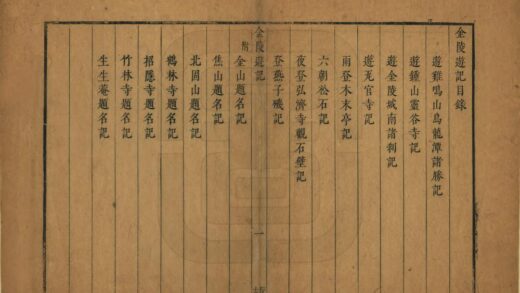 金陵遊記目錄
遊雞鳴山烏龍潭諸勝記
遊鍾山靈谷寺記
遊金陵城南諸刹記
遊瓦官寺記
雨登木末亭記
六朝松石記
夜登弘濟寺觀石壁記
登燕子磯記
金陵遊記
一
附
金山題名記
焦山題名記
北固山題名記
鶴林寺題名記
招隱寺題名記
竹林寺題名記
生生菴題名記